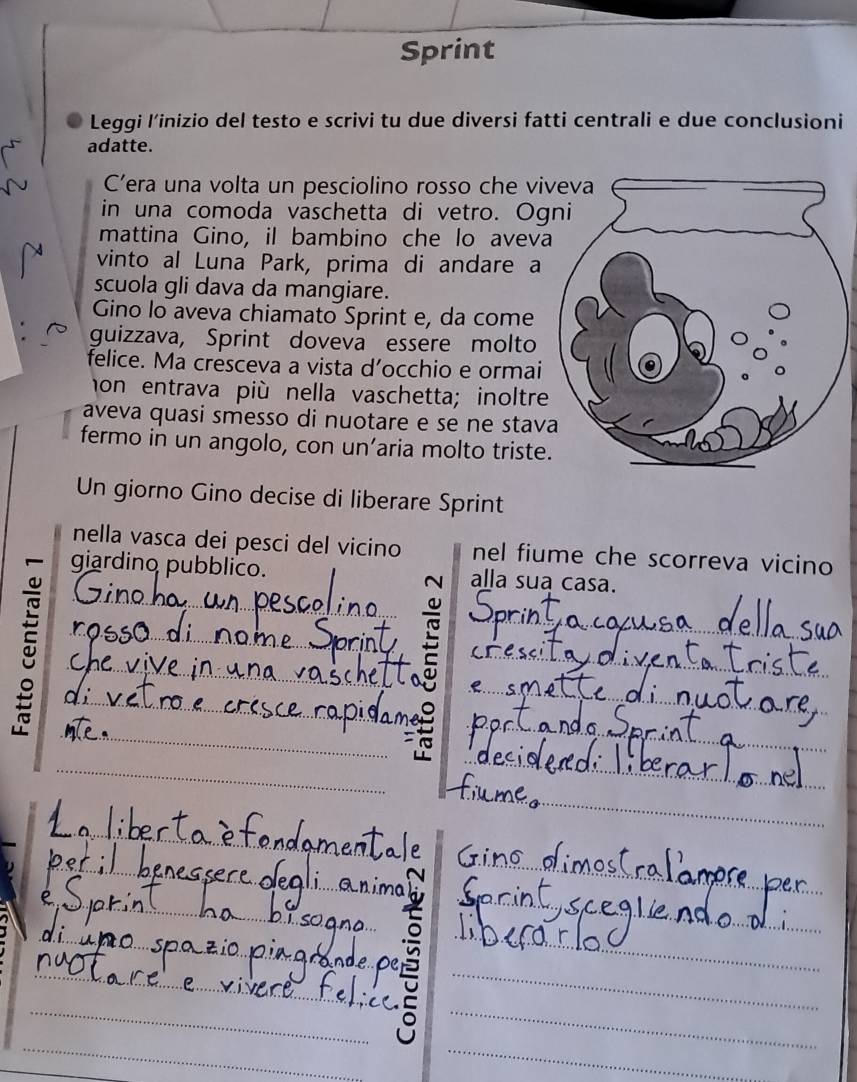 Sprint
Leggi l'inizio del testo e scrivi tu due diversi fatti centrali e due conclusioni
adatte.
C'era una volta un pesciolino rosso che viveva
in una comoda vaschetta di vetro. Ogni
mattina Gino, il bambino che lo aveva
vinto al Luna Park, prima di andare a
scuola gli dava da mangiare.
Gino lo aveva chiamato Sprint e, da come
guizzava, Sprint doveva essere molto
felice. Ma cresceva a vista d'occhio e ormai
non entrava più nella vaschetta; inoltre
aveva quasi smesso di nuotare e se ne stava
fermo in un angolo, con un'aria molto triste.
Un giorno Gino decise di liberare Sprint
Fatto centrale 1
nella vasca dei pesci del vicino
giardino pubblico.
Gino ha un pescolino
rosso di nome Sprint,
che vive in una vaschetta
di vetro e cresce rapidame=
nte.
Fatto centrale 2
nel fiume che scorreva vicino
alla sua casa.
Sprint, a cacusa della sua
crescita, diventa triste
e smette di nuotare,
portando Sprint a
decidered: liberarlo nel
fiume.
La liberta è fondamentale
per il benessere degli animali
e Sprint ha bisogno
di uno spazio piu grande per
nuotare e vivere felice.
Conclusione 2
Gino dimostra l'amore per
Sprint, scegliendo di
liberarlo